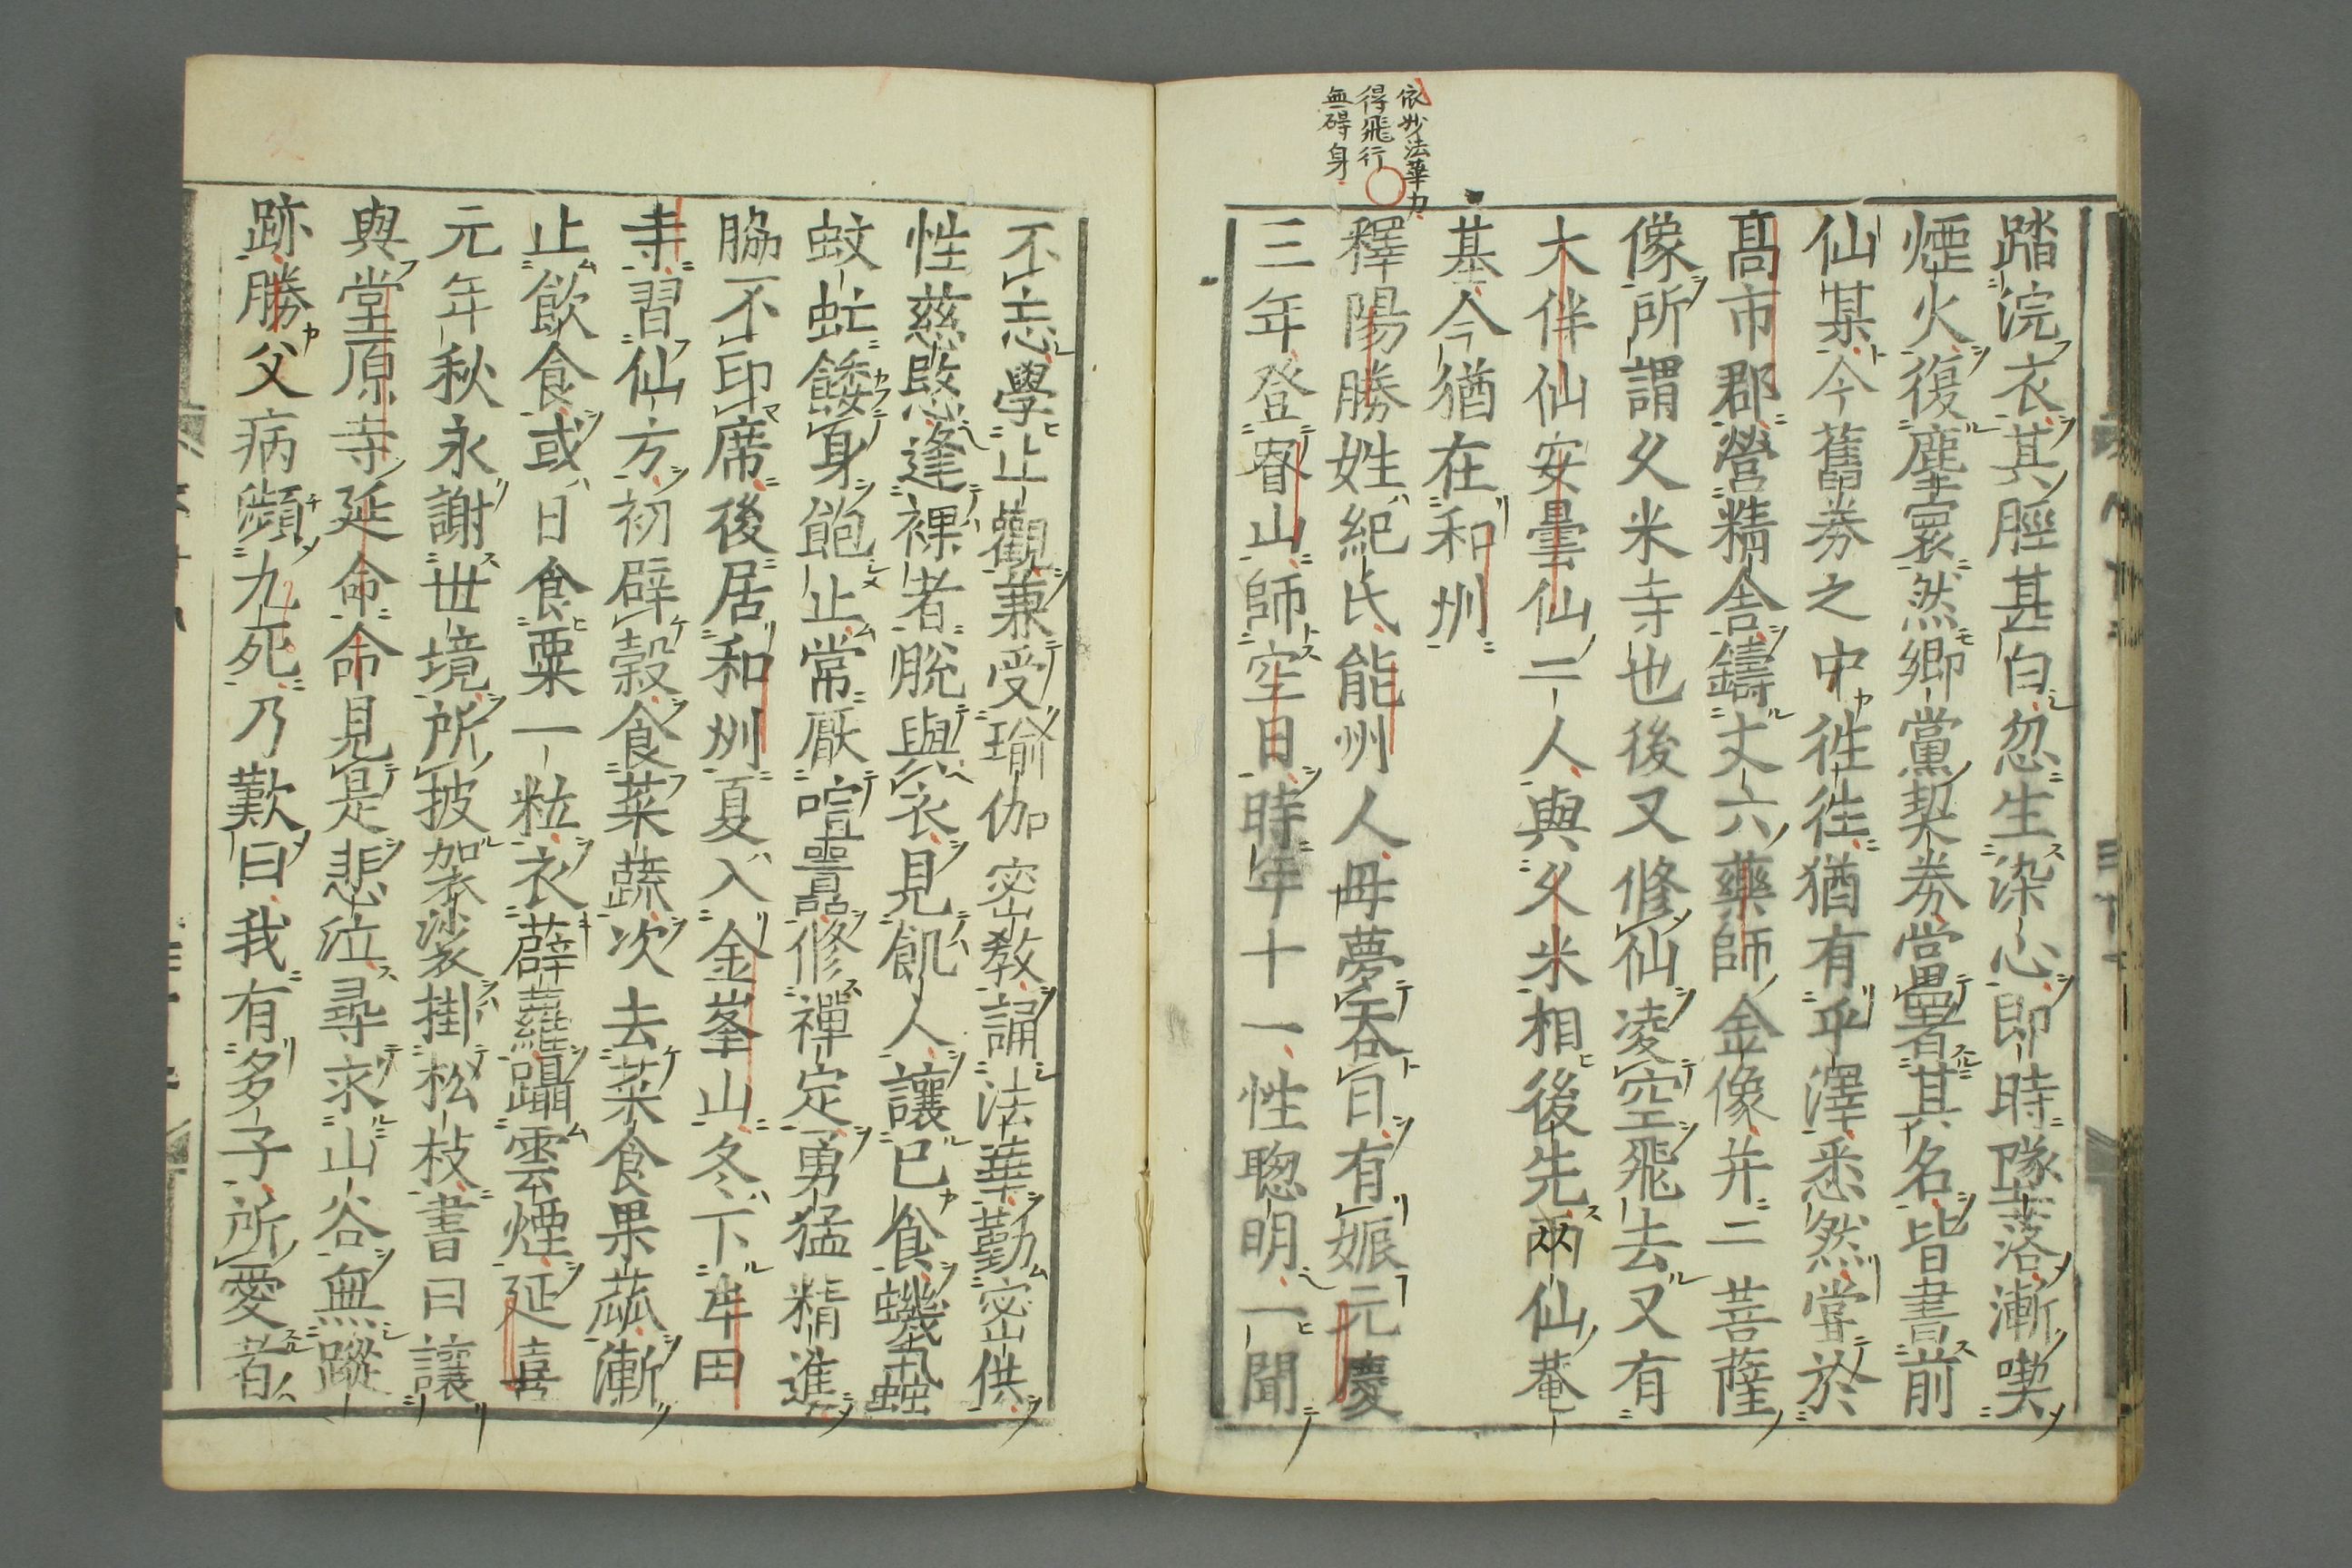 依妙法華力
得飛行
無碍身
踏浣衣其脛甚白忽生染心即時墜落漸喫
煙火復塵寰然鄉黨契券當署其名皆書前
仙某今舊券之中徃徃猶有乎澤悉然甞於
髙市郡營精舎鑄丈六藥師金像并二菩薩
像所謂久米寺也後又修仙凌空飛去又有
大伴仙安曇仙二人與久米相後先兩仙菴
基今猶在和州
釋陽勝姓紀氏能州人毋夢吞日有娠元慶
三年登睿山師空日時年十一性聦明一聞
不忘學止觀兼受瑜伽宻教誦法華勤宻供
性慈愍逢裸者脫與衣見飢人讓已食蟣虱
蚊虻餧身飽止常厭喧嚚修禪定勇猛精進
脇不印席後居和州夏入金峯山冬下牟田
寺習仙方初辟穀食菜蔬次去菜食果蓏漸
止飲食或日食粟一粒衣薜蘿躡雲煙延喜
元年秋永謝世境所披袈裟掛松枝書曰讓
與堂原寺延命命見是悲泣尋求山谷無蹤
跡勝父病瀕九死乃歎曰我有多子所愛者